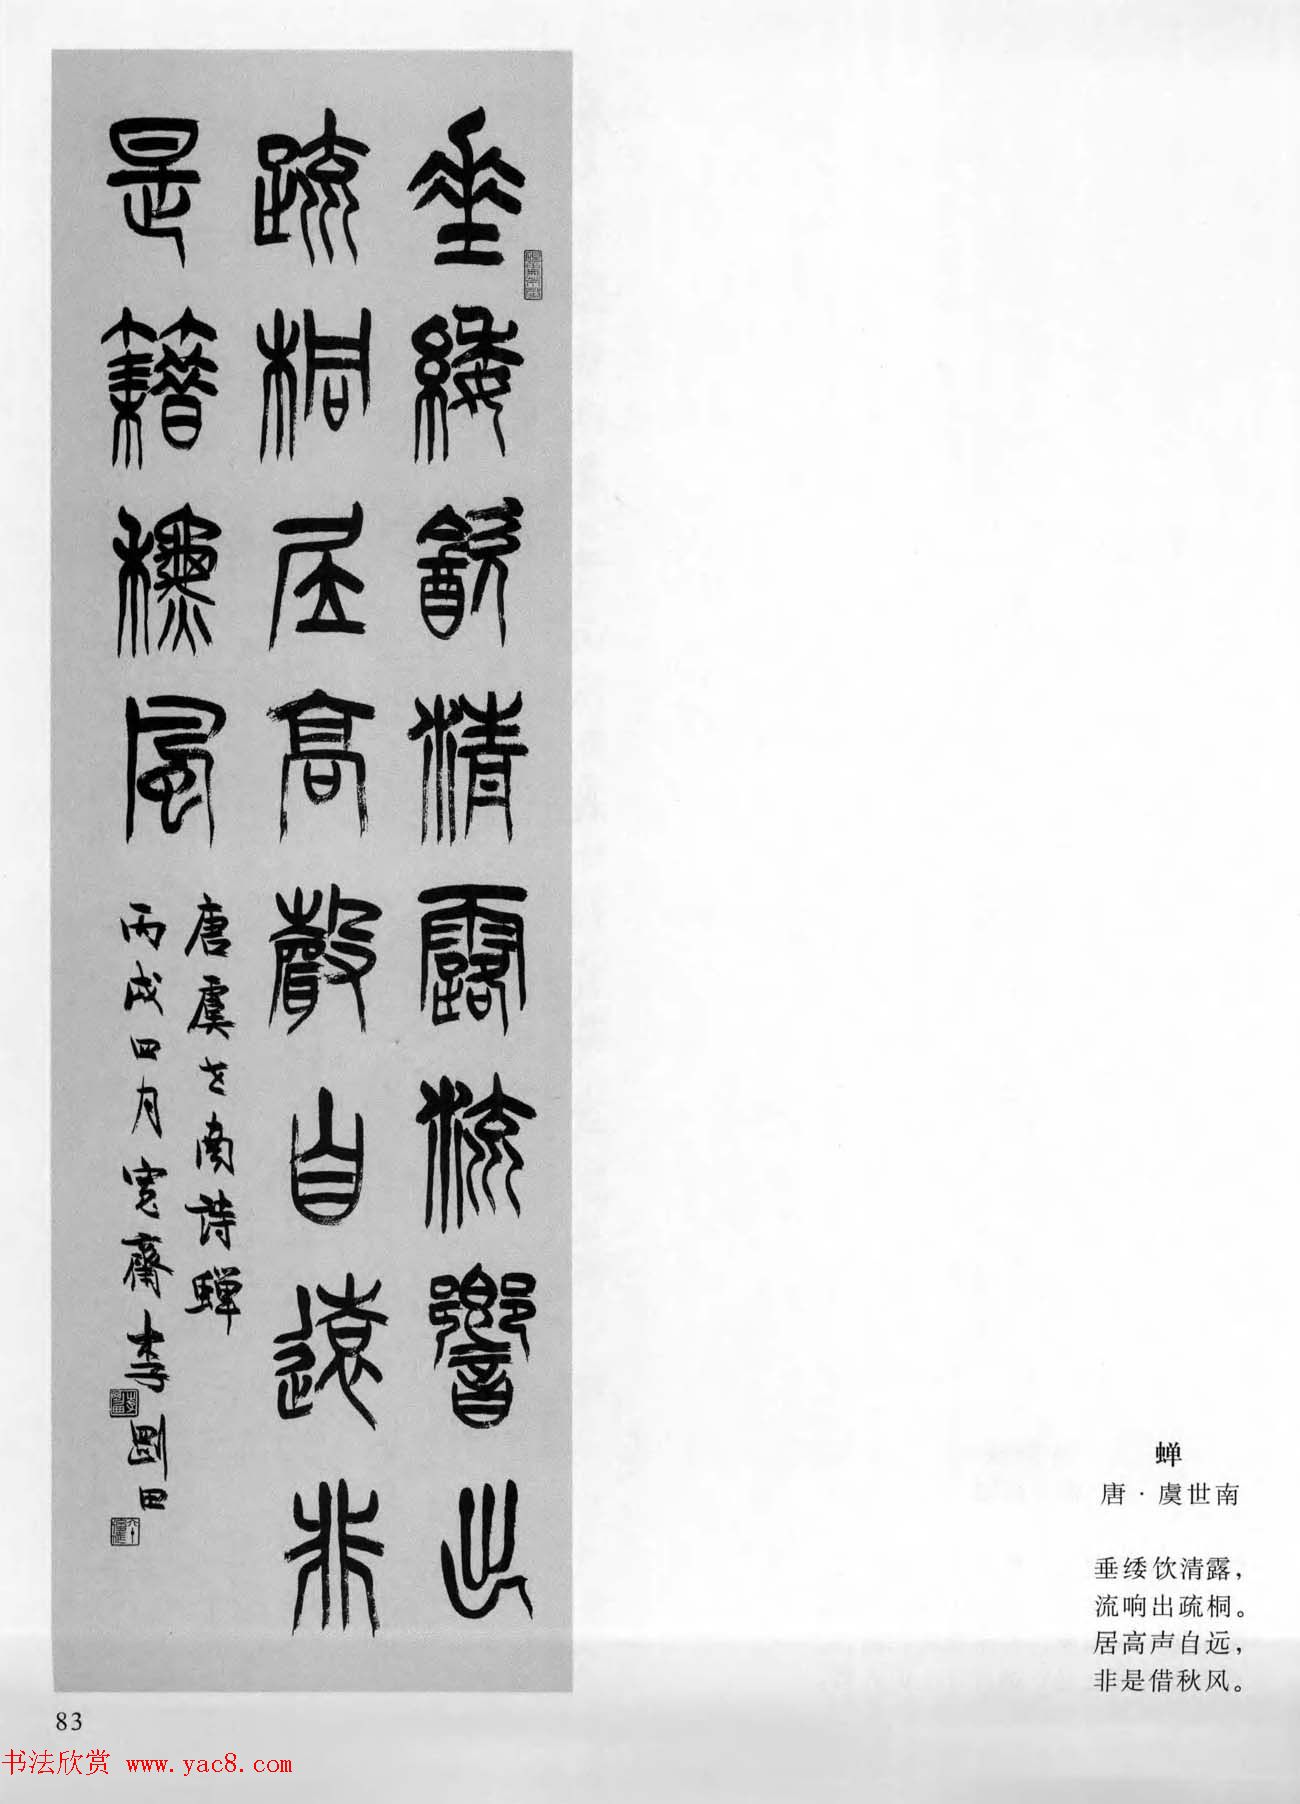 垂緌㱃清露流響出
疏桐居高聲自遠非
是籍龝風
唐虞世南詩蟬
丙戌四月寬齋李剛田
蝉
唐·虞世南
垂緌饮清露，
流响出疏桐。
居高声自远，
非是借秋风。
83
书法欣赏 www.yac8.com